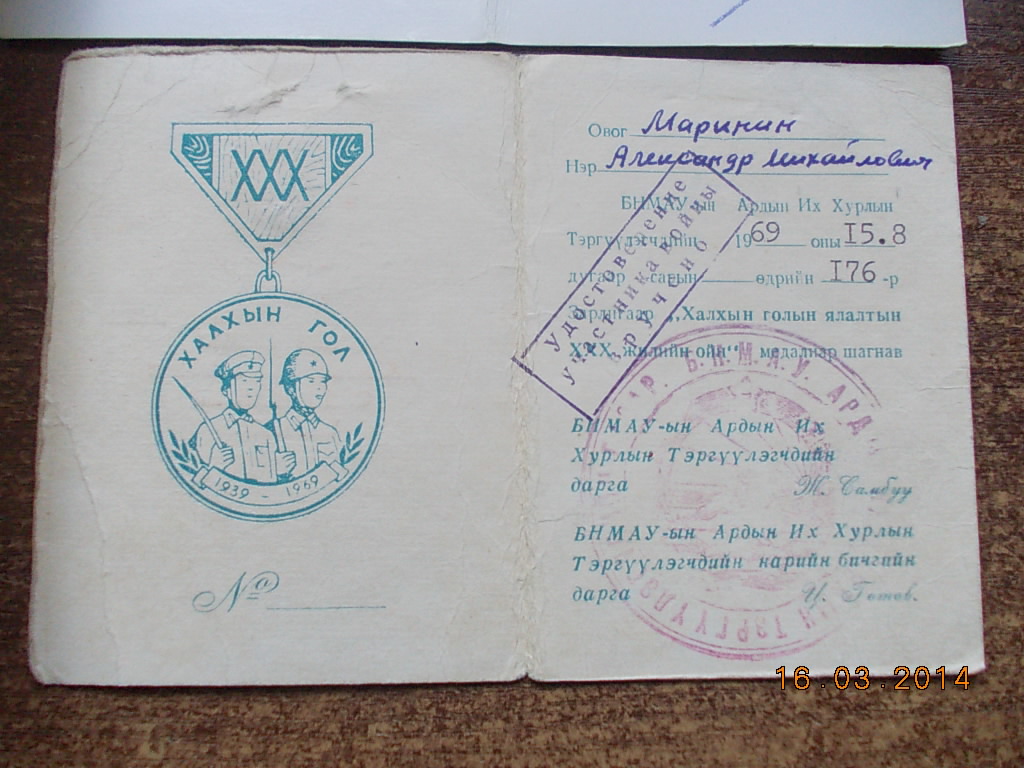 XXX
ХАЛХЫН ГОЛ
1939 - 1969
№
Овог Маринин
Нэр Александр Михайлович
БНМАУ-ын Ардын Их Хурлын
Тэргүүлэгчдийн 1969 оны I5.8
дугаар сарын өдрийн I76-р
Зарлигаар „Халхын голын ялалтын
XXX жилийн ойн“ медалиар шагнав
Удостоверение
участника войны
вручено
БНМАУ-ын Ардын Их
Хурлын Тэргүүлэгчдийн
дарга Ж. Самбуу
БНМАУ-ын Ардын Их Хурлын
Тэргүүлэгчдийн нарийн бичгийн
дарга Ц. Готов.
Б.Н.М.А.У. АРД
16.03.2014